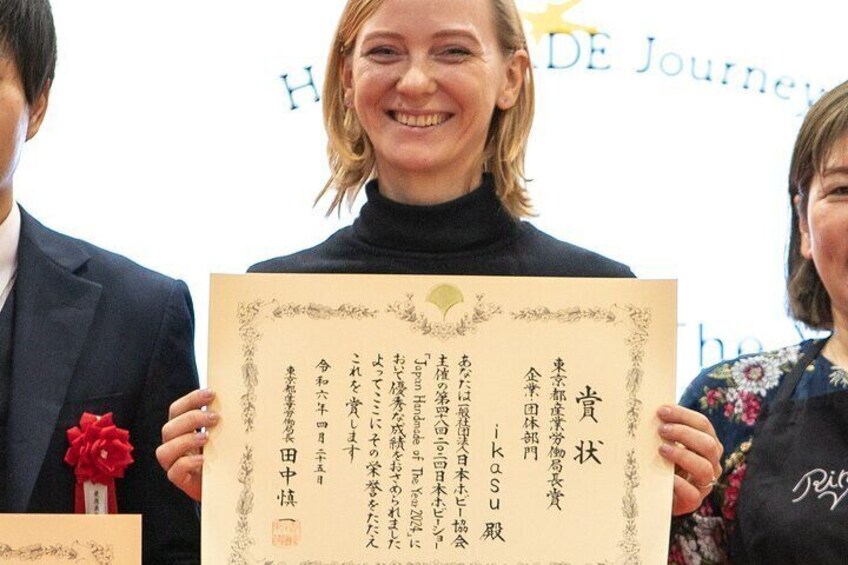 DE Journey
The
賞状
東京都産業労働局長賞
企業・団体部門
ikasu 殿
あなたは一般社団法人日本ホビー協会
主催の第四八回二〇二四日本ホビーショー
「Japan Handmade of The Year 2024」に
おいて優秀な成績をおさめられました
よってここにその栄誉をたたえ
これを賞します
令和六年四月二十五日
東京都産業労働局長 田中慎一